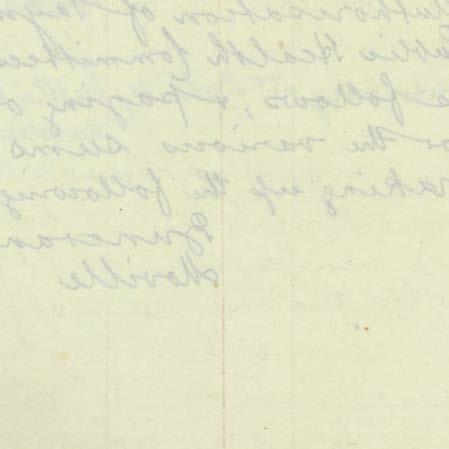 authorisation of
Public Health Committee
follows, & paying
for the various sums
making up the following
Buncrana
Moville